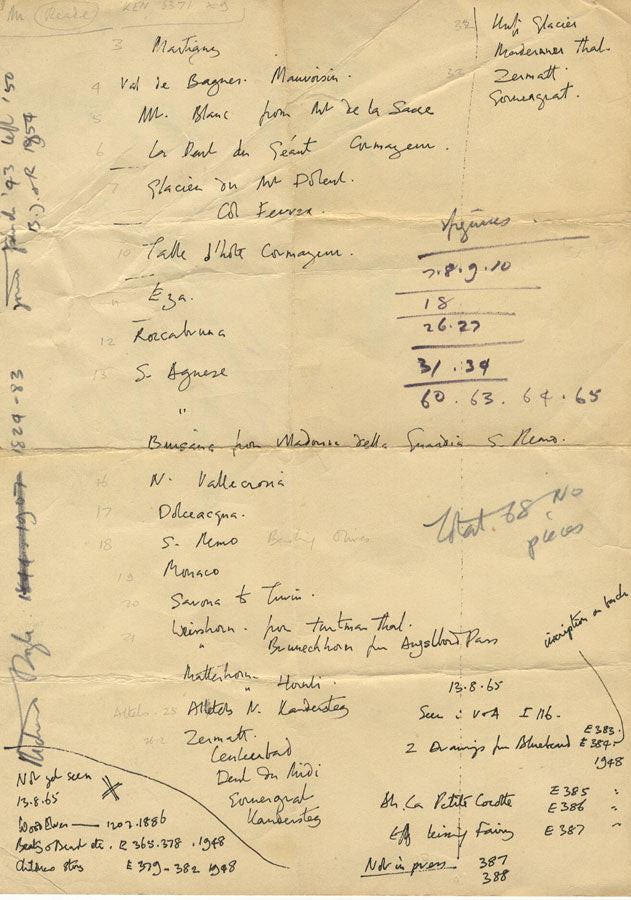 Mr (Reade) KEN 6371 x9
3 Martigny
4 Val de Bagnes. Mauvoisin.
5 Mt. Blanc from Mt de la Saxe
6 La Dent du Géant Cormayeur.
7 Glacier du Mt Dolent.
Col Ferrex.
10 Table d'hôte Cormayeur.
11 Eza.
12 Roccabruna
13 S. Agnese
"
from Madonna della Guardia S. Remo.
16 N. Vallecrosia
17 Dolceacqua.
18 S. Remo Beating Olives
19 Monaco
20 Savona to Turin.
21 Weisshorn from Turtman Thal.
" Brunechhorn from Augstbord Pass
Matterhorn
" Hornli.
Altels. 25 Altels N. Kandersteg
26.2 Zermatt.
Leukerbad
Dent du Midi
Gornergrat
Kandersteg
32 Hufi Glacier
Maderaner Thal.
33 Zermatt.
Gornergrat.
figures.
7.8.9.10
18
26.27
31.34
60.63. 64.65
Total. 68 No
pieces
inscription on
13.8.65
Seen : V & A I 116.
2 Drawings for Bluebeard E383.
E384
1948
Ah, La Petite Cocotte E385 "
E386 "
Elf kissing Fairy E387 "
Not in press 387
388
Not yet seen
13.8.65
1207.1886
E 365.378. 1948
Childrens story E 379-382 1948
Richard Doyle 1824-83
'43 left '50
1954